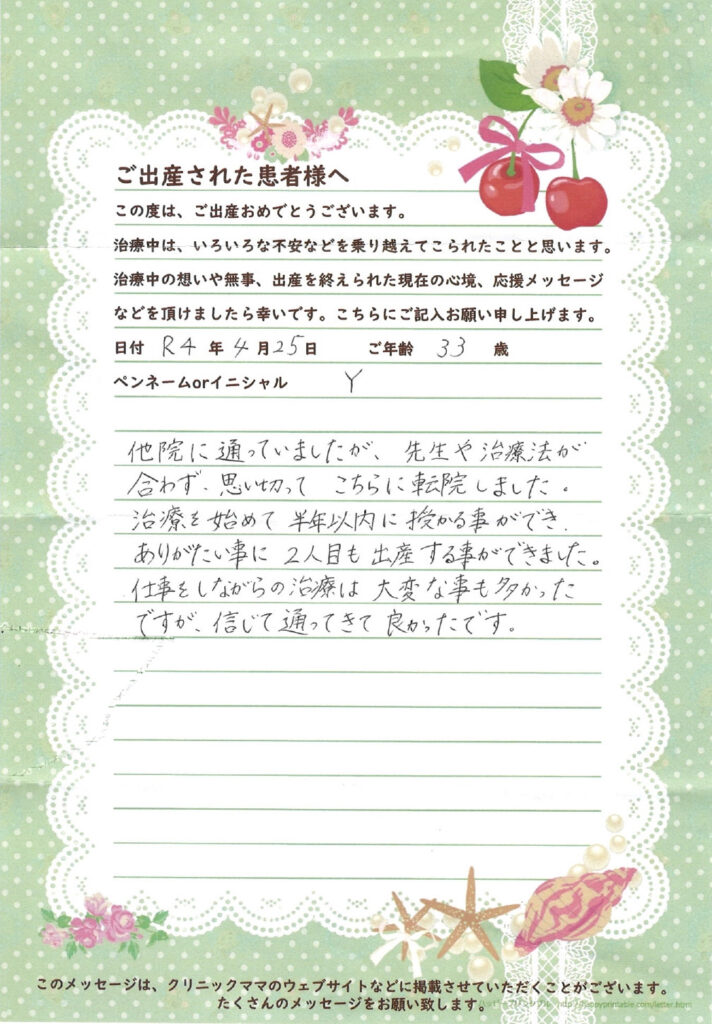 ご出産された患者様へ
この度は、ご出産おめでとうございます。
治療中は、いろいろな不安などを乗り越えてこられたことと思います。
治療中の想いや無事、出産を終えられた現在の心境、応援メッセージ
などを頂けましたら幸いです。こちらにご記入お願い申し上げます。
日付 R4 年 4 月 25 日 ご年齢 33 歳
ペンネームorイニシャル Y
他院に通っていましたが、先生や治療法が
合わず、思い切って こちらに転院しました。
治療を始めて 半年以内に 授かる事ができ、
ありがたい事に 2人目も 出産する事ができました。
仕事をしながらの治療は 大変な事も多かった
ですが、信じて通ってきて 良かったです。
このメッセージは、クリニックママのウェブサイトなどに掲載させていただくことがございます。
たくさんのメッセージをお願い致します。
ハッピープリンタブル http://happyprintable.com/letter.htm